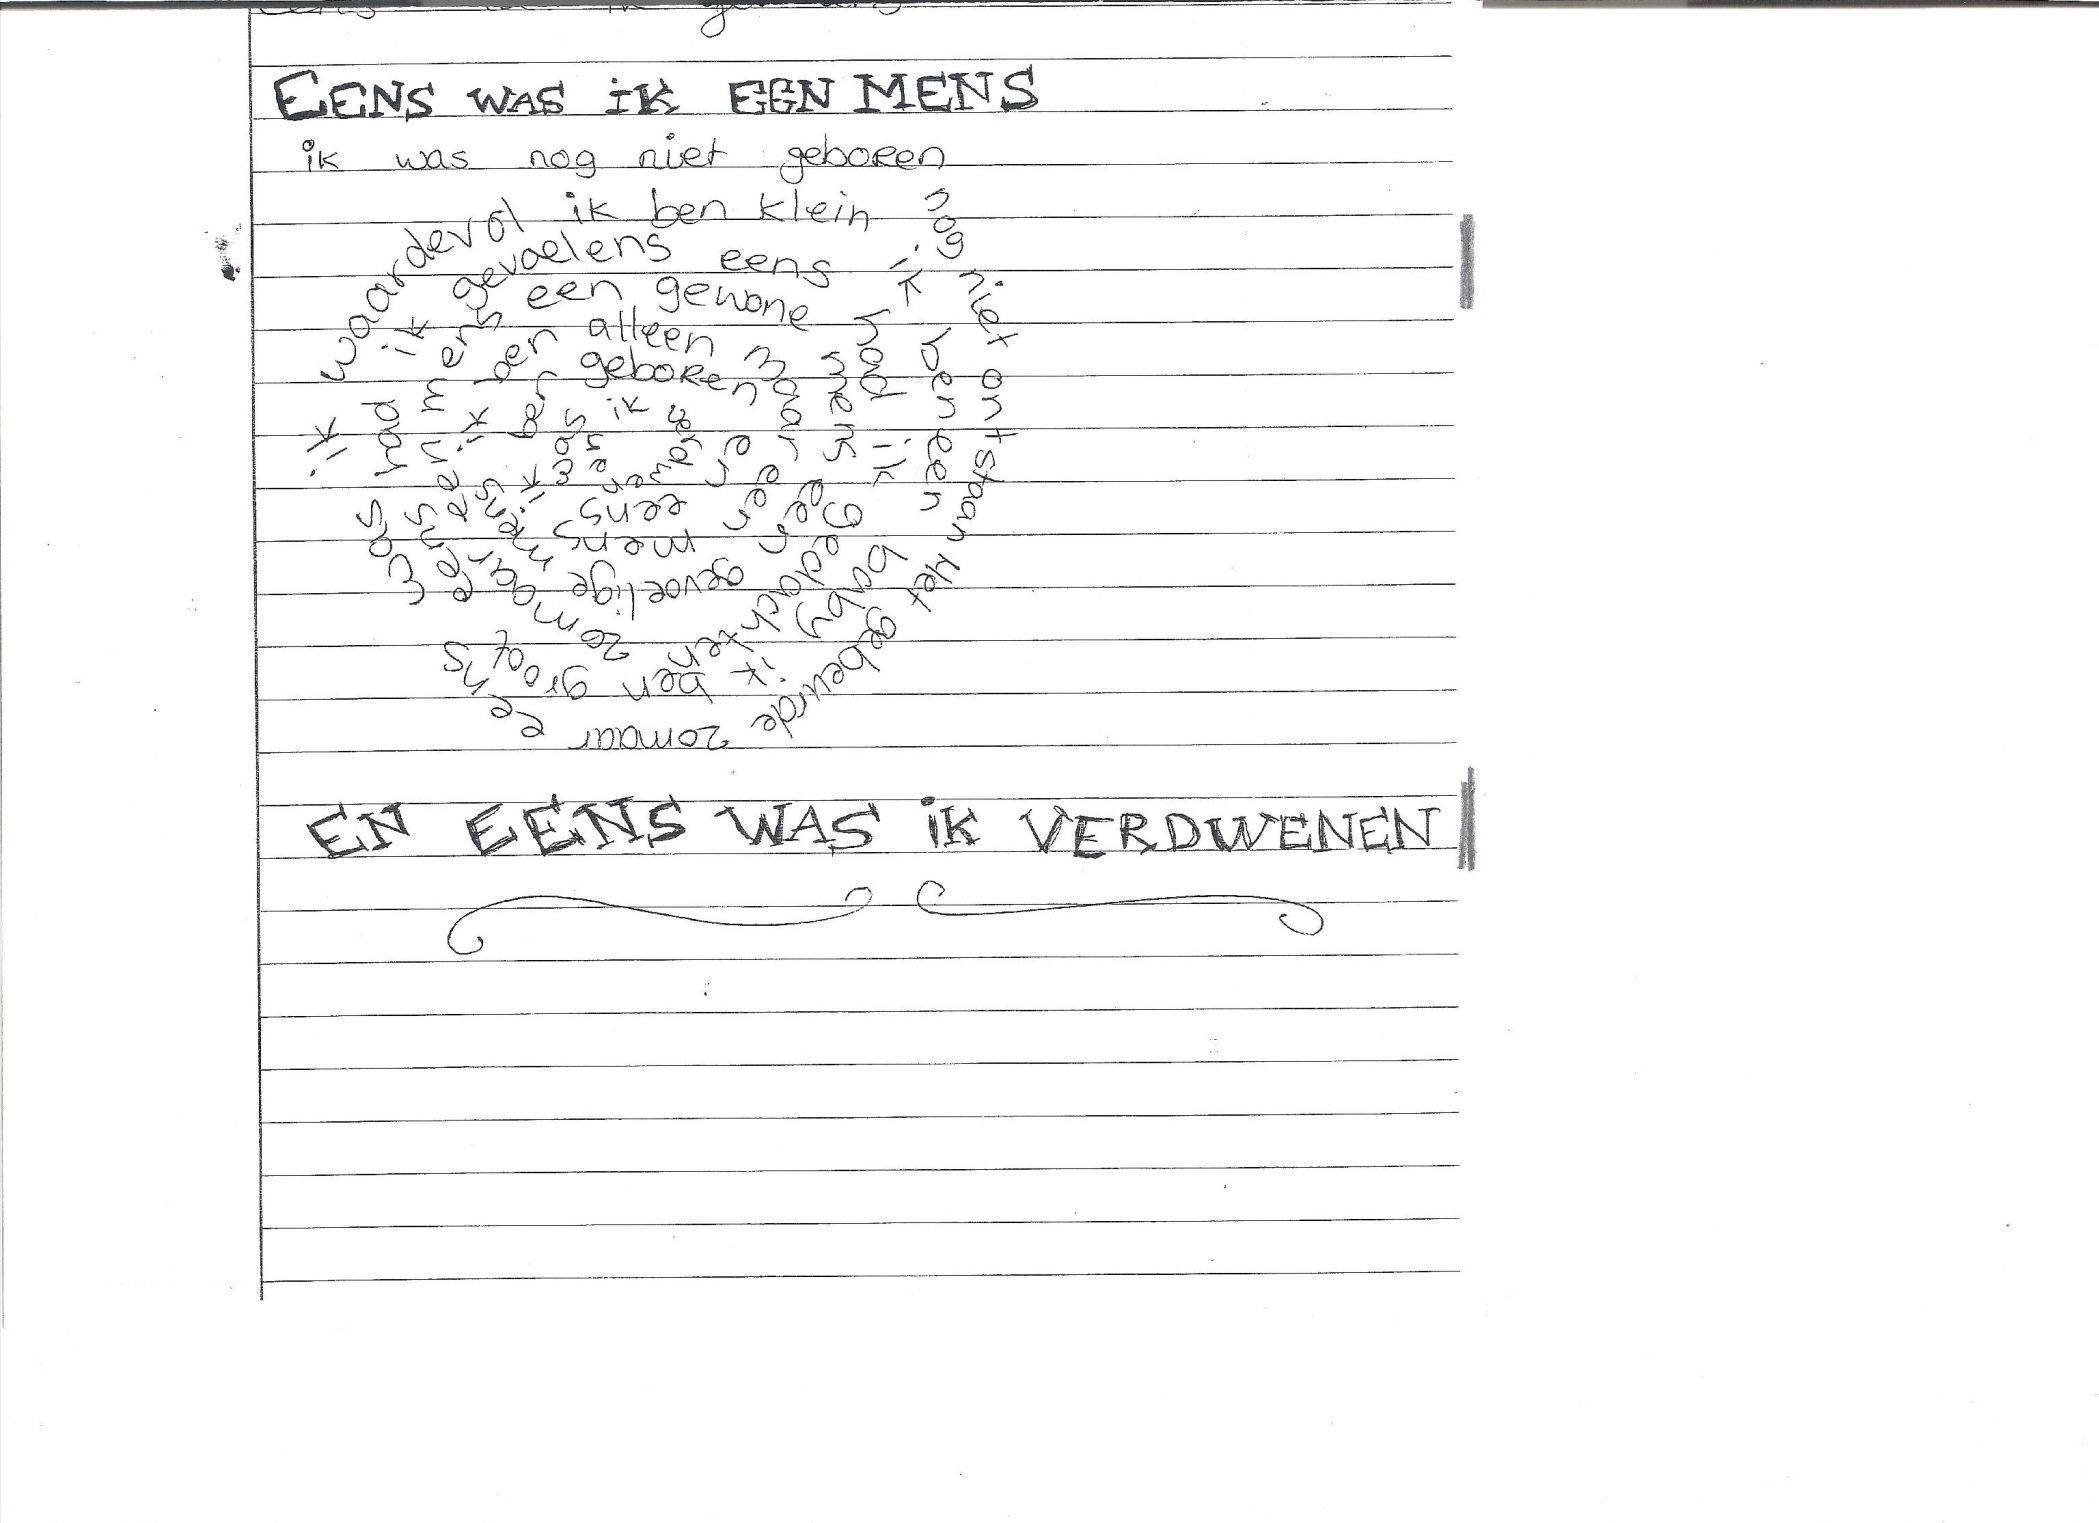 EENS WAS iK EEN MENS
ik was nog niet geboren
nog niet ontstaan Het gebeurde zomaar eens
was ik waardevol ik ben klein
ik ben een baby ik ben groot
eens had ik gevoelens eens
had ik gedachten zomaar
een mens een gewone
mens een gevoelige mens
ik ben alleen maar een mens
ik ben geboren en eens
was ik verdwenen
EN EENS WAS iK VERDWENEN